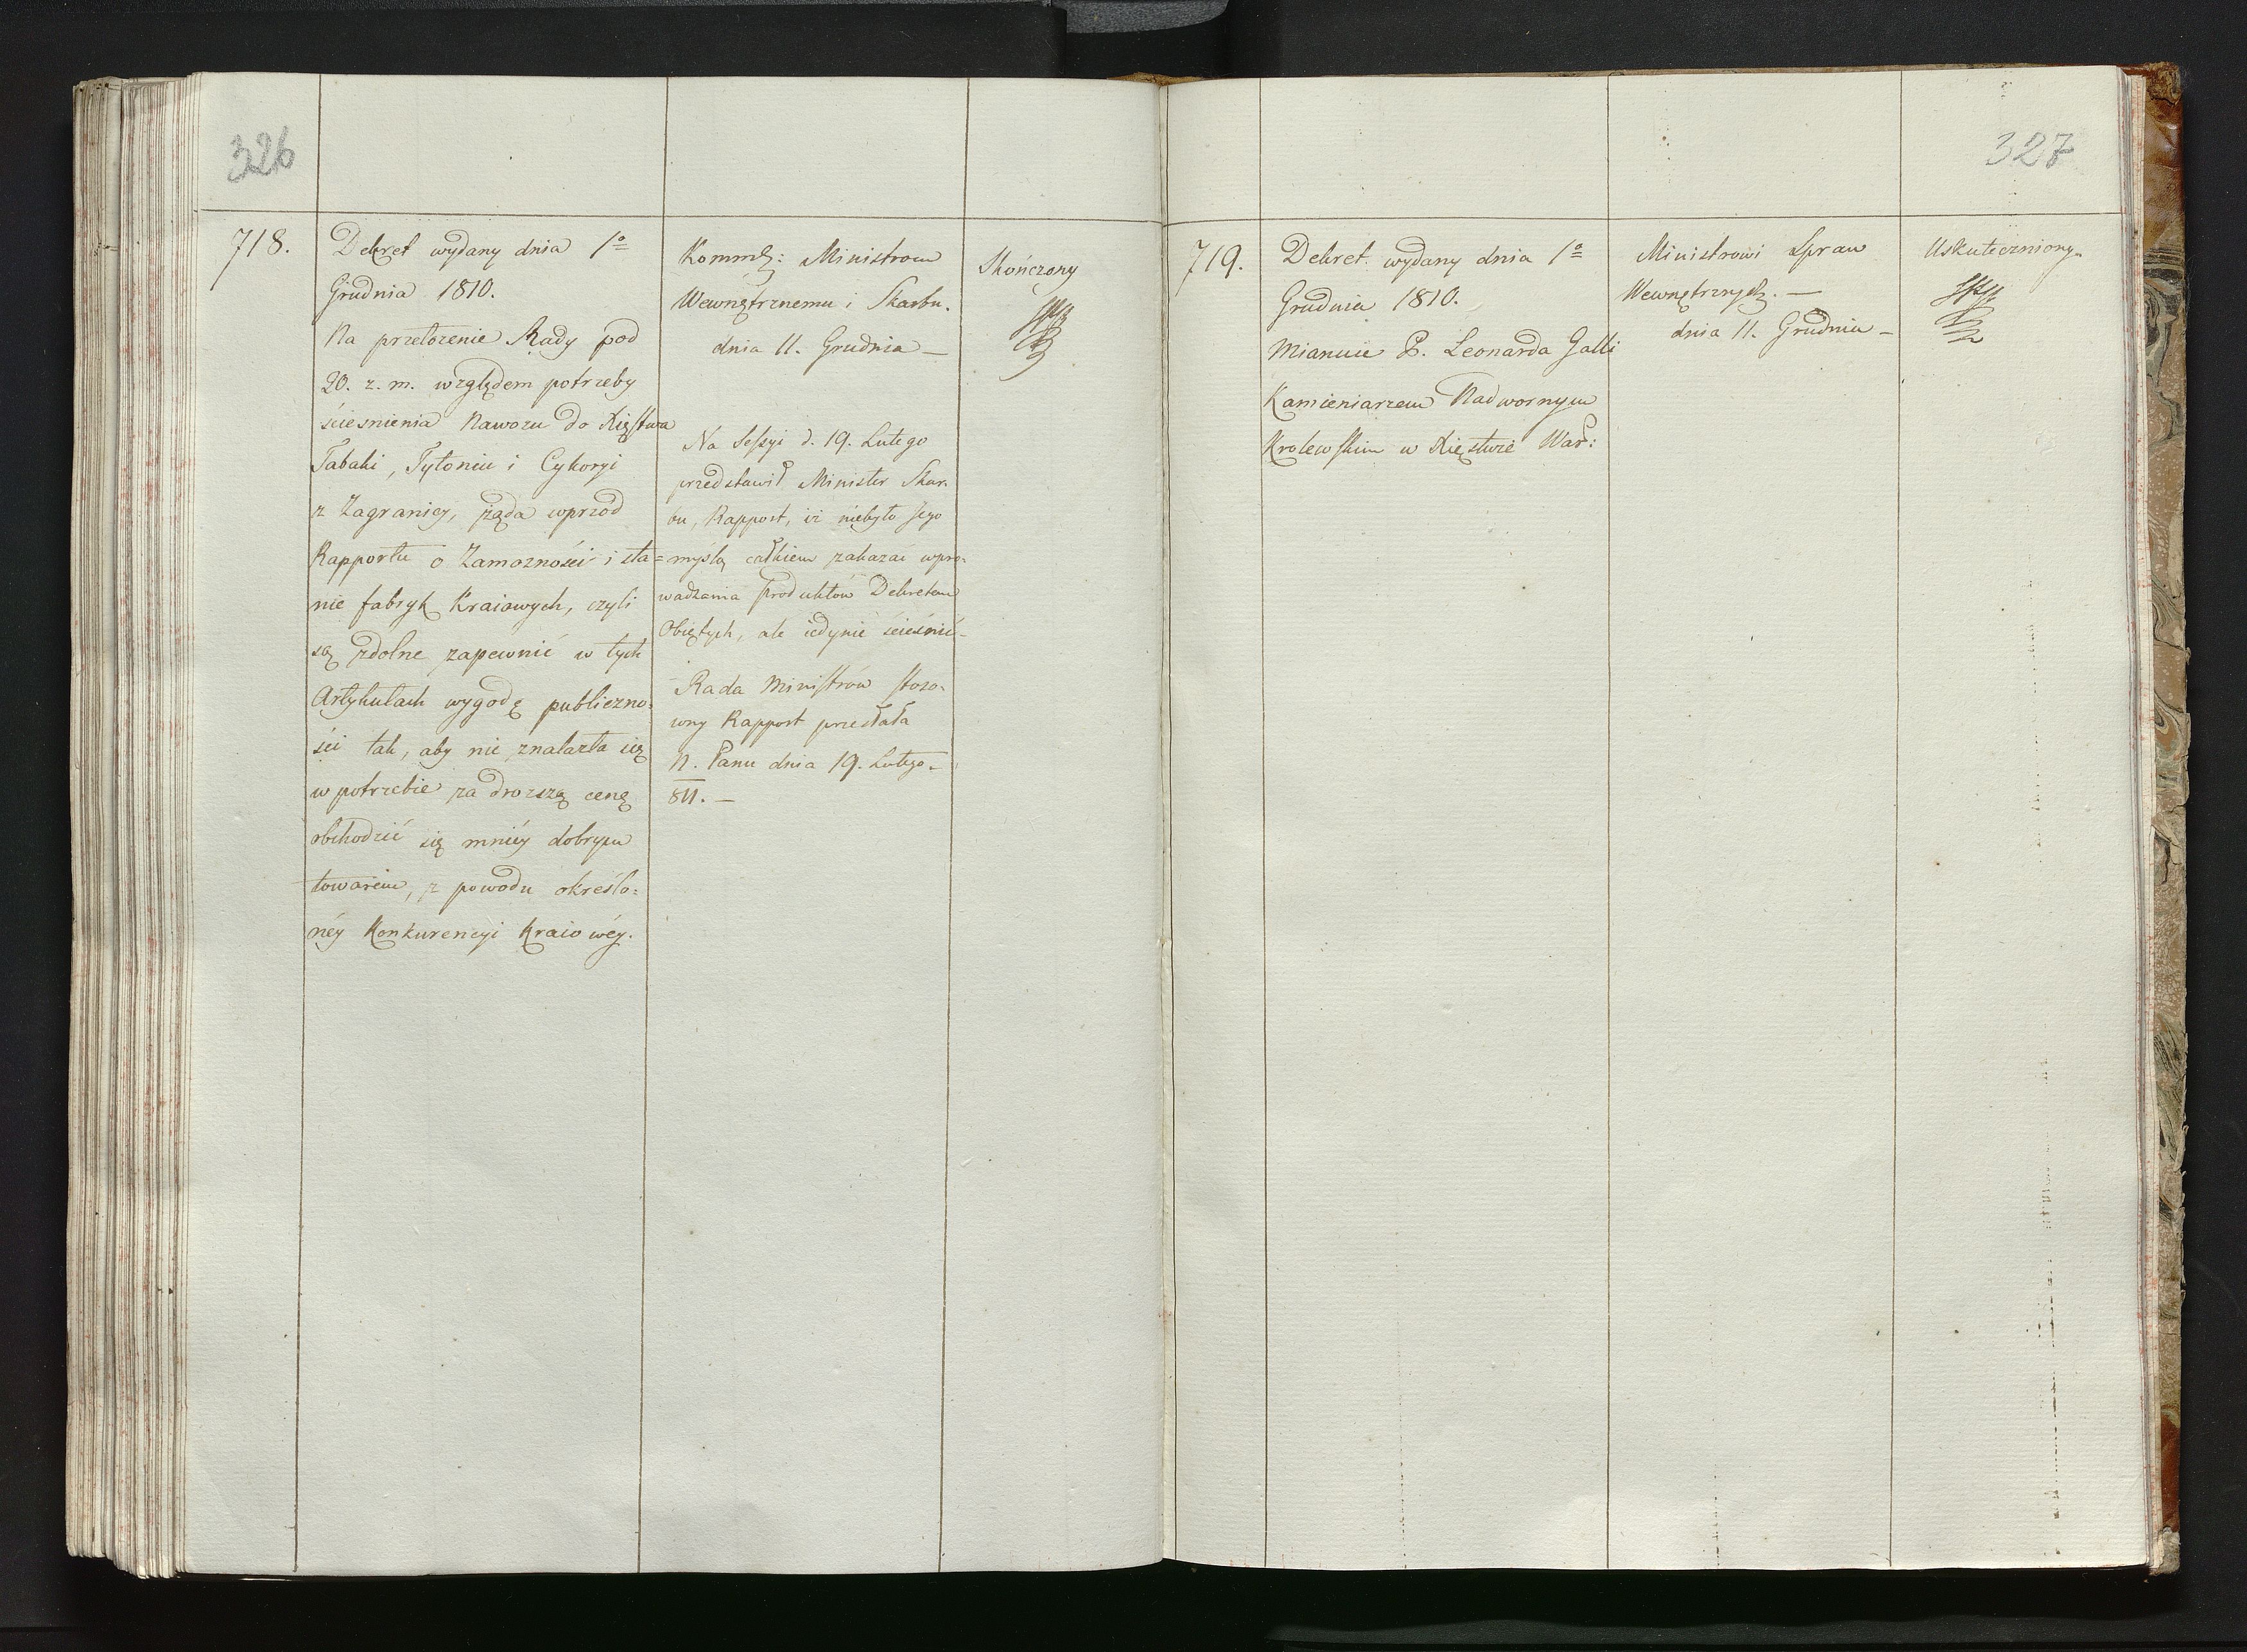 326
718.
Dekret wydany dnia 1o
Grudnia 1810.
Na przełożenie Rady pod
20. z. m. względem potrzeby
ściesnienia Nawozu do Xięstwa
Tabaki, Tytoniu i Cykoryi
z Zagranicy, żąda wprzód
Rapportu o Zamożności i sta=
nie fabryk Kraiowych, czyli
są zdolne zapewnić w tych
Artykułach wygodę publiczno=
ści tak, aby nie znalazła się
w potrzebie za drozszą cenę
obchodzić się mniéy dobrym
towarem, z powodu określo=
néy Konkurencyi Kraiowéy.
Kommk: Ministrom
Wewnętrznemu i Skarbu.
dnia 11. Grudnia —
Na Sessyi d. 19. Lutego
przedstawił Minister Skar=
bu, Rapport, iż niebyło jego
myślą całkiem zakazać wpro=
wadzania produktów Dekretem
Obiętych, ale iedynie ścieśnić —
Rada Ministrów stoso=
wny Rapport przesłała
N. Panu dnia 19. Lutego —
811. —
Skończony
327
719.
Dekret wydany dnia 1o
Grudnia 1810.
Mianuie P. Leonarda Galli
Kamieniarzem Nadwornym
Krolewskim w Xięstwie War:
Ministrowi Spraw
Wewnętrznych. —
dnia 11. Grudnia —
Uskuteczniony.